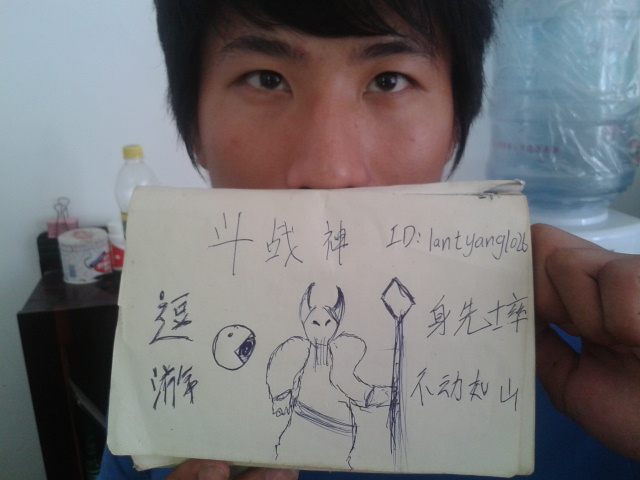 斗战神 ID: lantyang1026
逗游
身先士率
不动如山